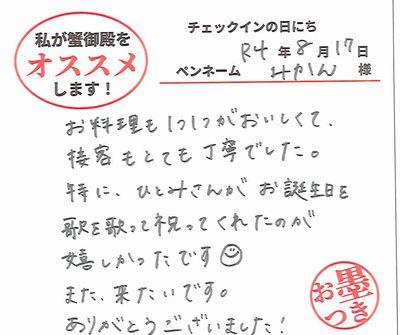 私が蟹御殿を
オススメ
します！
チェックインの日にち
R4 年 8 月 17 日
ペンネーム みかん 様
お料理も1つ1つがおいしくて、
接客もとても丁寧でした。
特に、ひとみさんがお誕生日を
歌を歌って祝ってくれたのが
嬉しかったです
また、来たいです。
ありがとうございました！
お墨つき